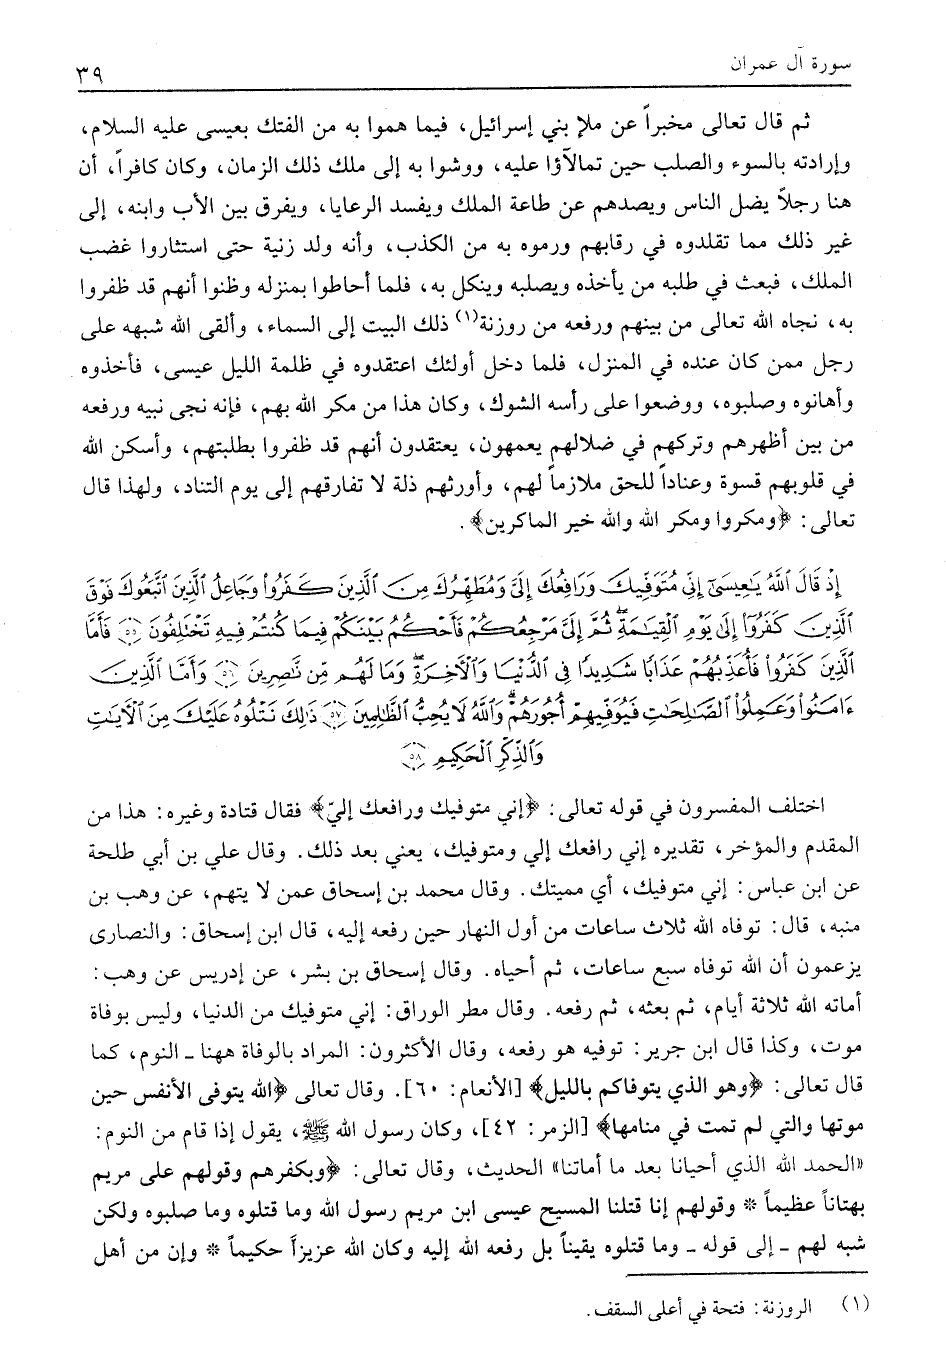 سورة آل عمران
٣٩
ثم قال تعالى مخبراً عن ملإ بني إسرائيل، فيما هموا به من الفتك بعيسى عليه السلام،
وإرادته بالسوء والصلب حين تمالآؤا عليه، ووشوا به إلى ملك ذلك الزمان، وكان كافراً، أن
هنا رجلاً يضل الناس ويصدهم عن طاعة الملك ويفسد الرعايا، ويفرق بين الأب وابنه، إلى
غير ذلك مما تقلدوه في رقابهم ورموه به من الكذب، وأنه ولد زنية حتى استثاروا غضب
الملك، فبعث في طلبه من يأخذه ويصلبه وينكل به، فلما أحاطوا بمنزله وظنوا أنهم قد ظفروا
به، نجاه الله تعالى من بينهم ورفعه من روزنة(١) ذلك البيت إلى السماء، وألقى الله شبهه على
رجل ممن كان عنده في المنزل، فلما دخل أولئك اعتقدوه في ظلمة الليل عيسى، فأخذوه
وأهانوه وصلبوه، ووضعوا على رأسه الشوك، وكان هذا من مكر الله بهم، فإنه نجى نبيه ورفعه
من بين أظهرهم وتركهم في ضلالهم يعمهون، يعتقدون أنهم قد ظفروا بطلبتهم، وأسكن الله
في قلوبهم قسوة وعناداً للحق ملازماً لهم، وأورثهم ذلة لا تفارقهم إلى يوم التناد، ولهذا قال
تعالى: ﴿ومكروا ومكر الله والله خير الماكرين﴾.
إِذْ قَالَ ٱللَّهُ يَٰعِيسَىٰٓ إِنِّي مُتَوَفِّيكَ وَرَافِعُكَ إِلَيَّ وَمُطَهِّرُكَ مِنَ ٱلَّذِينَ كَفَرُوا۟ وَجَاعِلُ ٱلَّذِينَ ٱتَّبَعُوكَ فَوْقَ
ٱلَّذِينَ كَفَرُوٓا۟ إِلَىٰ يَوْمِ ٱلْقِيَٰمَةِ ۖ ثُمَّ إِلَيَّ مَرْجِعُكُمْ فَأَحْكُمُ بَيْنَكُمْ فِيمَا كُنتُمْ فِيهِ تَخْتَلِفُونَ ﴿٥٥﴾ فَأَمَّا
ٱلَّذِينَ كَفَرُوا۟ فَأُعَذِّبُهُمْ عَذَابًا شَدِيدًا فِي ٱلدُّنْيَا وَٱلْأَخِرَةِ ۖ وَمَا لَهُم مِّن نَّٰصِرِينَ ﴿٥٦﴾ وَأَمَّا ٱلَّذِينَ
ءَامَنُوا۟ وَعَمِلُوا۟ ٱلصَّٰلِحَٰتِ فَيُوَفِّيهِمْ أُجُورَهُمْ ۗ وَٱللَّهُ لَا يُحِبُّ ٱلظَّٰلِمِينَ ﴿٥٧﴾ ذَٰلِكَ نَتْلُوهُ عَلَيْكَ مِنَ ٱلْأَيَٰتِ
وَٱلذِّكْرِ ٱلْحَكِيمِ ﴿٥٨﴾
اختلف المفسرون في قوله تعالى: ﴿إني متوفيك ورافعك إليّ﴾ فقال قتادة وغيره: هذا من
المقدم والمؤخر، تقديره إني رافعك إلي ومتوفيك، يعني بعد ذلك. وقال علي بن أبي طلحة
عن ابن عباس: إني متوفيك، أي مميتك. وقال محمد بن إسحاق عمن لا يتهم، عن وهب بن
منبه، قال: توفاه الله ثلاث ساعات من أول النهار حين رفعه إليه، قال ابن إسحاق: والنصارى
يزعمون أن الله توفاه سبع ساعات، ثم أحياه. وقال إسحاق بن بشر، عن إدريس عن وهب:
أماته الله ثلاثة أيام، ثم بعثه، ثم رفعه. وقال مطر الوراق: إني متوفيك من الدنيا، وليس بوفاة
موت، وكذا قال ابن جرير: توفيه هو رفعه، وقال الأكثرون: المراد بالوفاة ههنا - النوم، كما
قال تعالى: ﴿وهو الذي يتوفاكم بالليل﴾ [الأنعام: ٦٠]. وقال تعالى ﴿الله يتوفى الأنفس حين
موتها والتي لم تمت في منامها﴾ [الزمر: ٤٢]، وكان رسول الله ﷺ، يقول إذا قام من النوم:
«الحمد الله الذي أحيانا بعد ما أماتنا» الحديث، وقال تعالى: ﴿وبكفرهم وقولهم على مريم
بهتاناً عظيماً * وقولهم إنا قتلنا المسيح عيسى ابن مريم رسول الله وما قتلوه وما صلبوه ولكن
شبه لهم - إلى قوله - وما قتلوه يقيناً بل رفعه الله إليه وكان الله عزيزاً حكيماً * وإن من أهل
(١) الروزنة: فتحة في أعلى السقف.